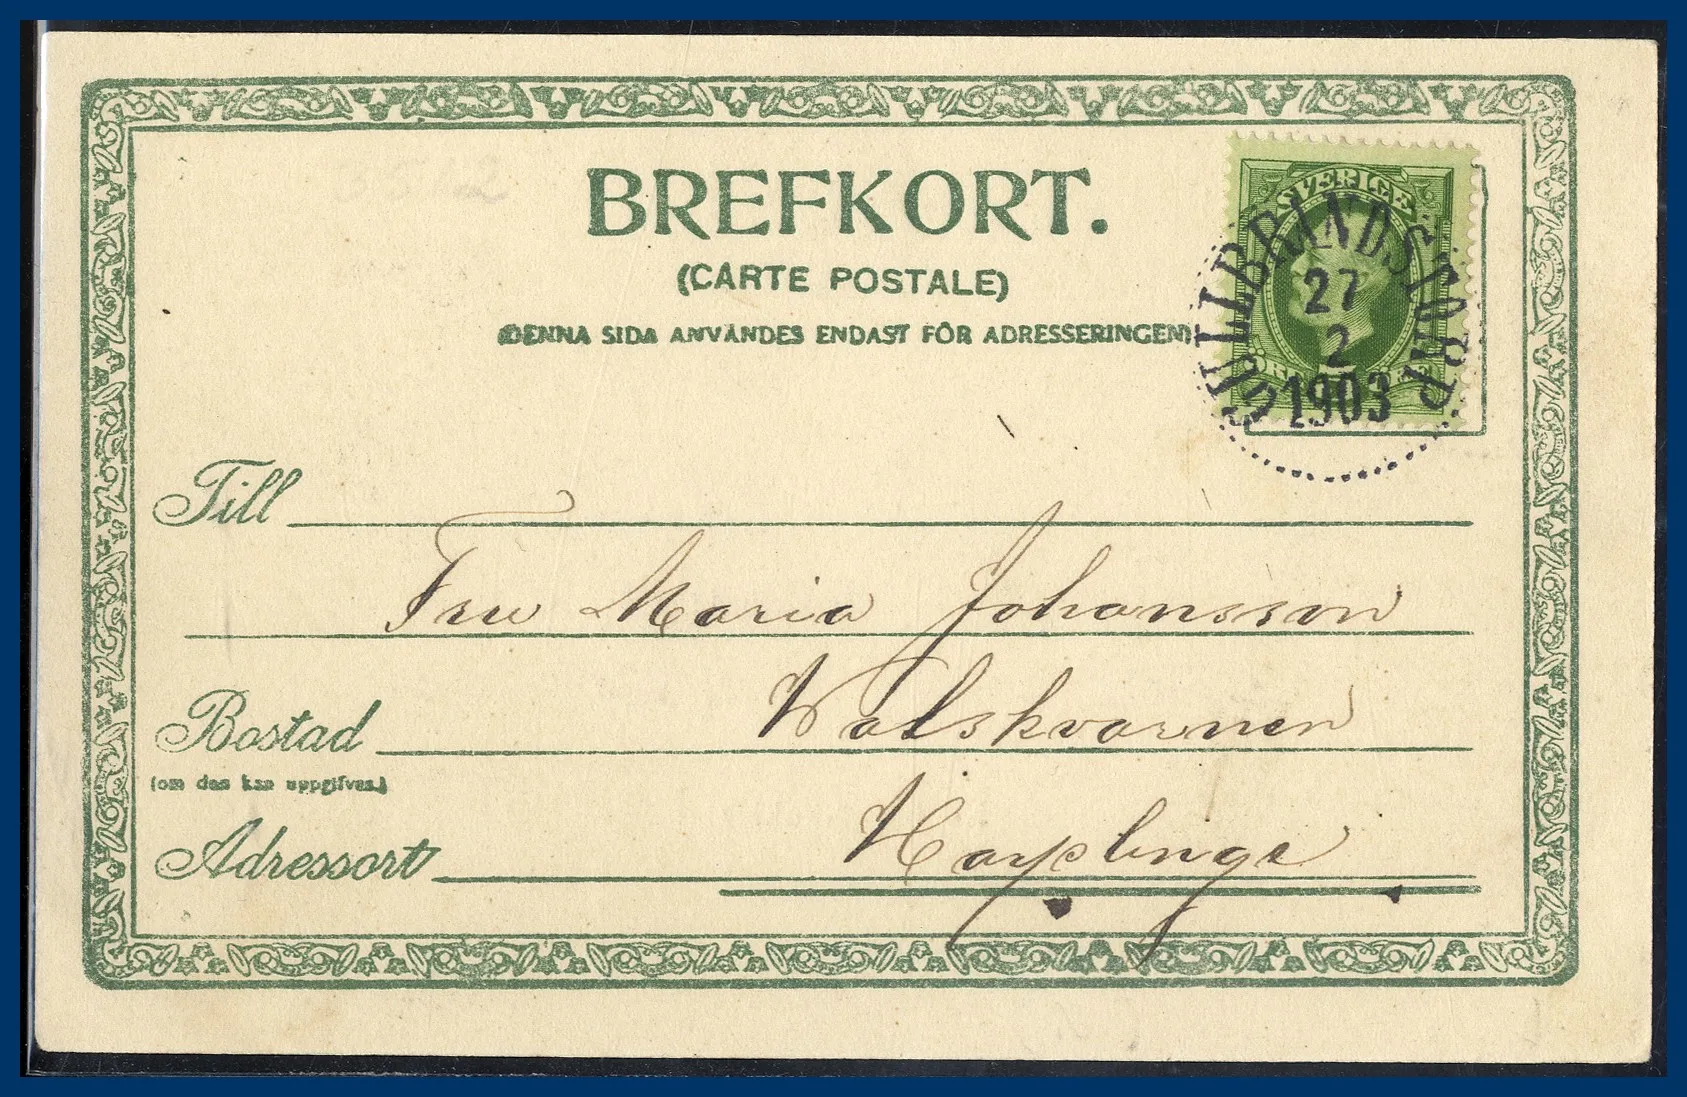 BREFKORT.
(CARTE POSTALE)
(DENNA SIDA ANVÄNDES ENDAST FÖR ADRESSERINGEN)
SVERIGE
GULLBRANDSTORP
27
2
1903
Till
Fru Maria Johansson
Bostad
(om den kan uppgifvas.)
Adressort
Harplinge